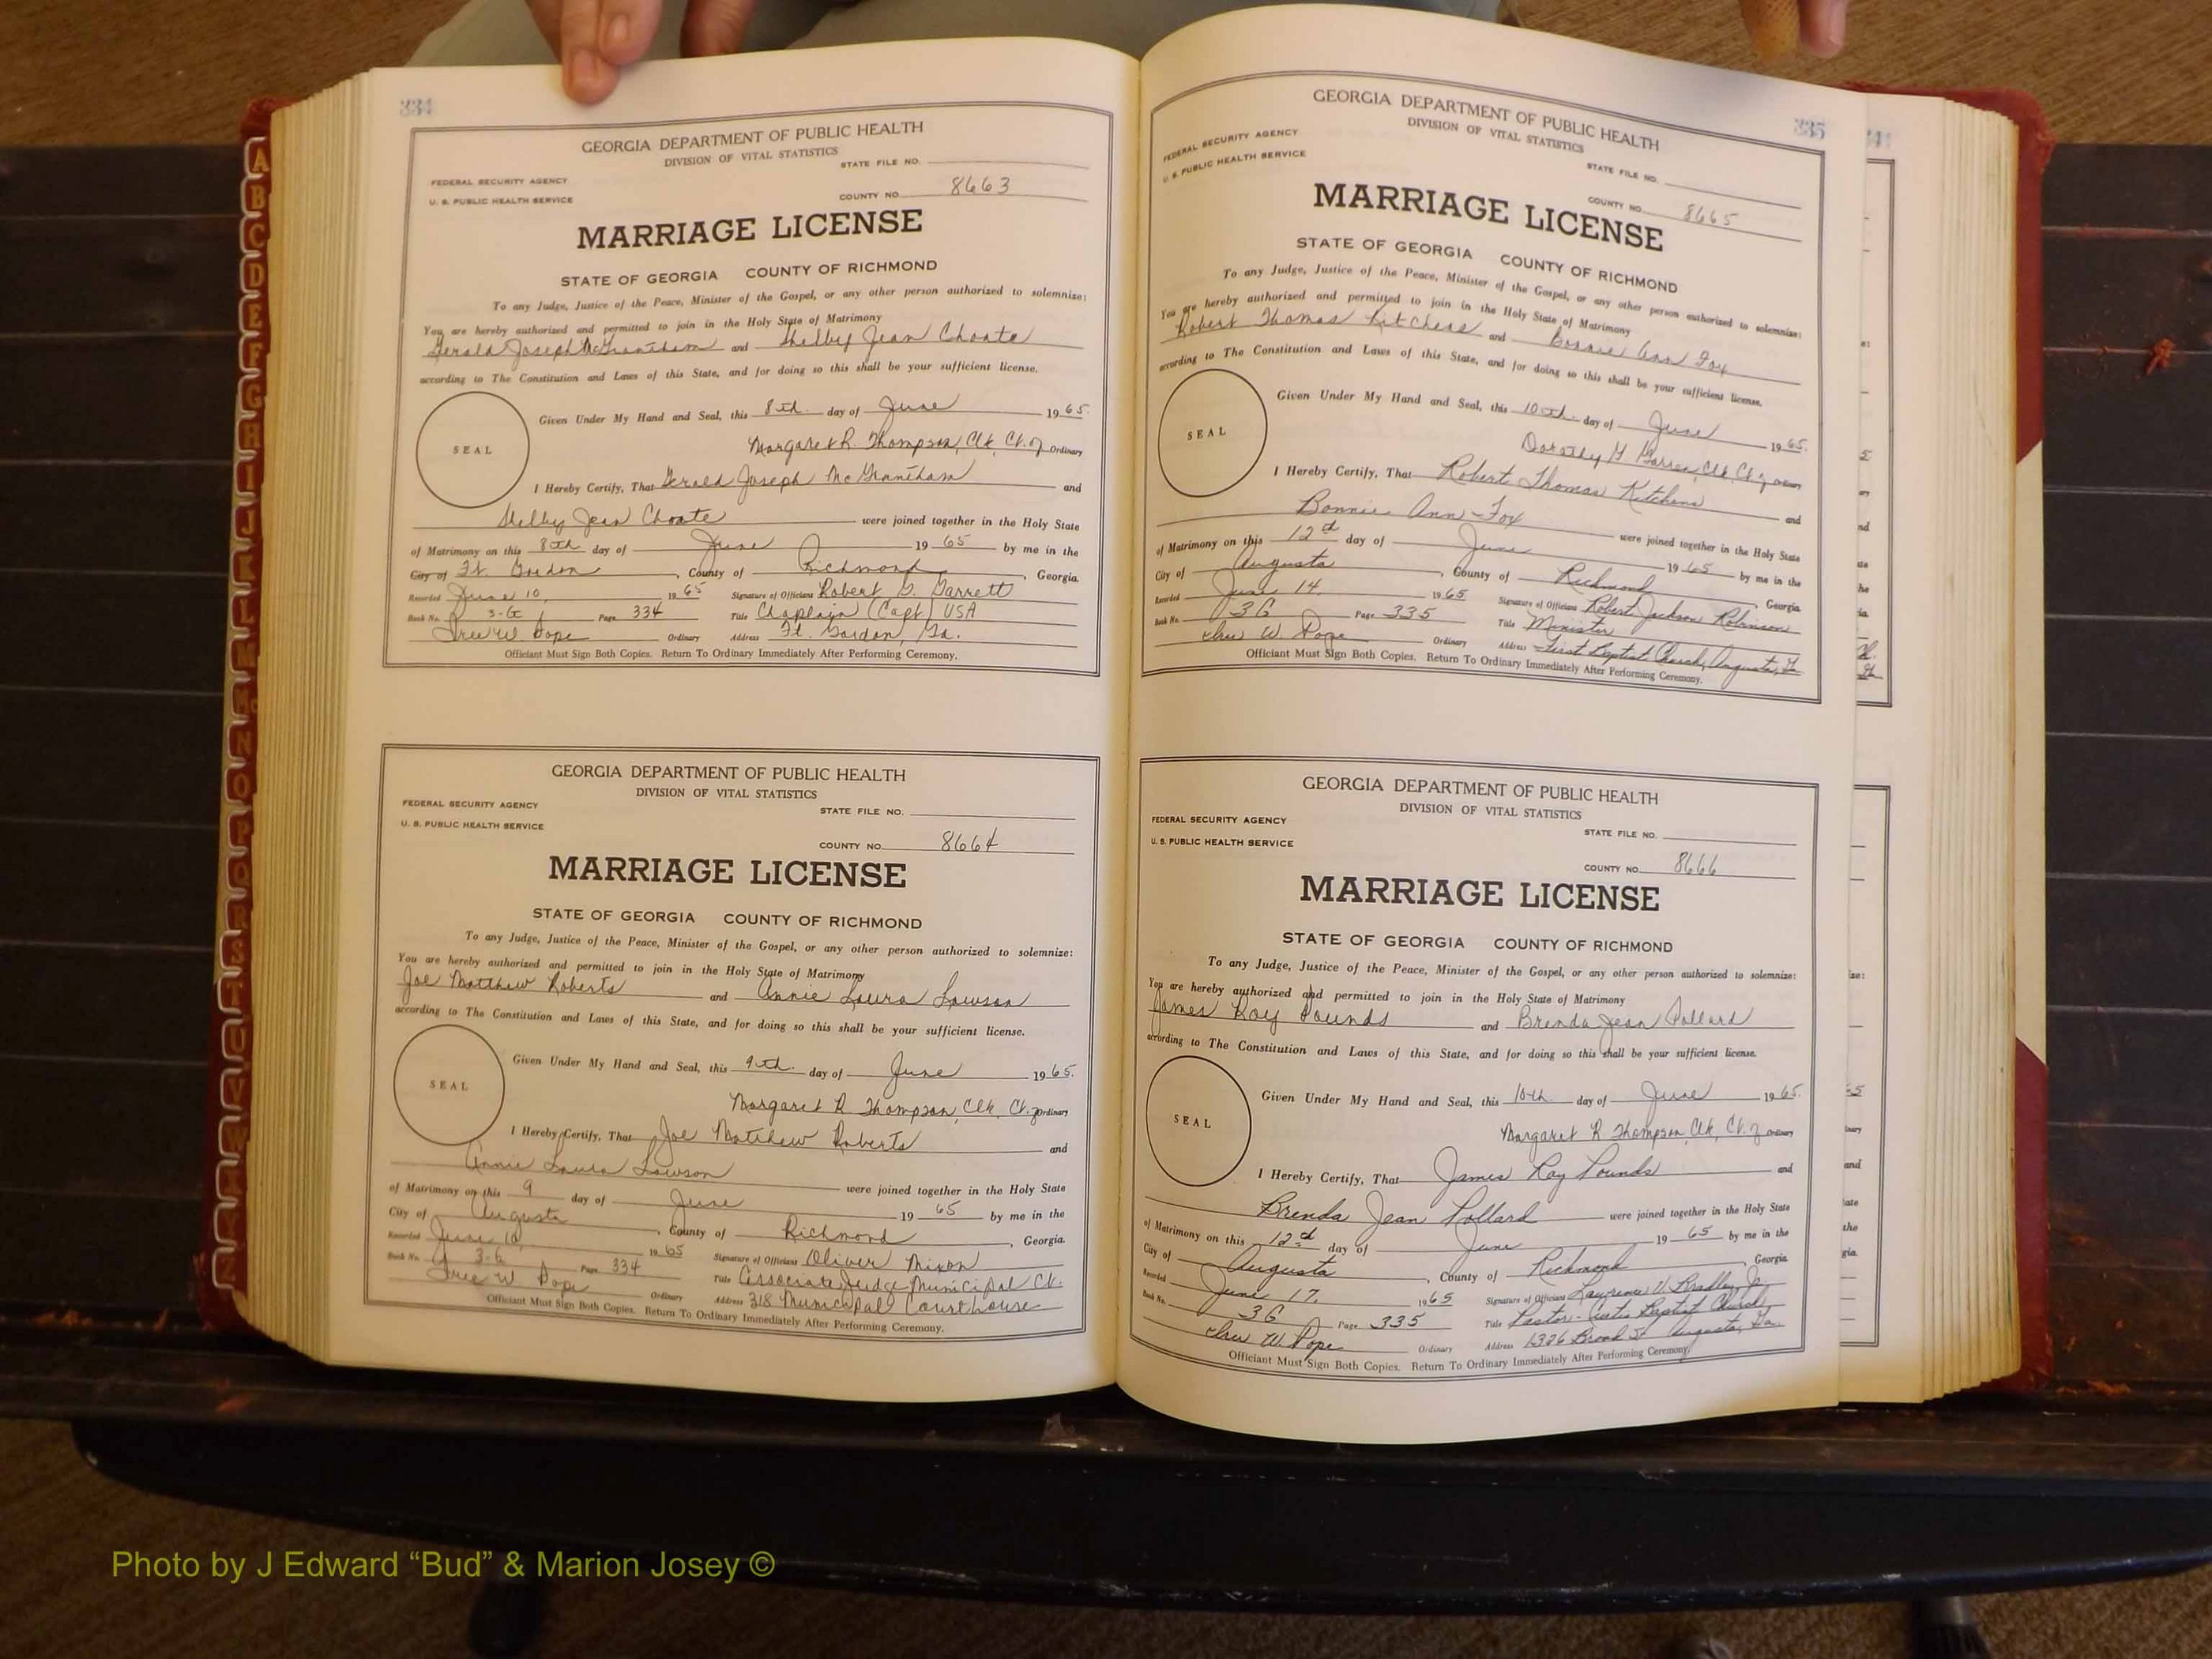 334
GEORGIA DEPARTMENT OF PUBLIC HEALTH
DIVISION OF VITAL STATISTICS
STATE FILE NO.
FEDERAL SECURITY AGENCY
U. S. PUBLIC HEALTH SERVICE
COUNTY NO. 8663
MARRIAGE LICENSE
STATE OF GEORGIA COUNTY OF RICHMOND
To any Judge, Justice of the Peace, Minister of the Gospel, or any other person authorized to solemnize:
You are hereby authorized and permitted to join in the Holy State of Matrimony
Gerald Joseph McGrantham and Shelby Jean Choate
according to The Constitution and Laws of this State, and for doing so this shall be your sufficient license.
SEAL
Given Under My Hand and Seal, this 8th. day of June 1965.
Margaret R. Thompson, Clk, Ct. of Ordinary
I Hereby Certify, That Gerald Joseph McGrantham and
Shelby Jean Choate were joined together in the Holy State
of Matrimony on this 8th day of June 1965 by me in the
City of Ft. Gordon, County of Richmond, Georgia.
Recorded June 10, 1965 Signature of Officiant Robert G. Garrett
Book No. 3-G Page 334 Title Chaplain (Capt) USA
W. Pope Ordinary Address Ft. Gordon, Ga.
Officiant Must Sign Both Copies. Return To Ordinary Immediately After Performing Ceremony.
GEORGIA DEPARTMENT OF PUBLIC HEALTH
DIVISION OF VITAL STATISTICS
FEDERAL SECURITY AGENCY
STATE FILE NO.
U. S. PUBLIC HEALTH SERVICE
COUNTY NO. 8664
MARRIAGE LICENSE
STATE OF GEORGIA COUNTY OF RICHMOND
To any Judge, Justice of the Peace, Minister of the Gospel, or any other person authorized to solemnize:
You are hereby authorized and permitted to join in the Holy State of Matrimony
Joe Matthew Roberts and Annie Laura Lawson
according to The Constitution and Laws of this State, and for doing so this shall be your sufficient license.
SEAL
Given Under My Hand and Seal, this 9th. day of June 1965.
Margaret R. Thompson, Clk, Ct. of Ordinary
I Hereby Certify, That Joe Matthew Roberts and
Annie Laura Lawson were joined together in the Holy State
of Matrimony on this 9 day of June 1965 by me in the
City of Augusta, County of Richmond, Georgia.
Recorded June 10, 1965 Signature of Officiant Oliver Mixon
Book No. 3-G Page 334 Title Associate Judge Municipal Ct.
W. Pope Ordinary Address 318 Municipal Courthouse
Officiant Must Sign Both Copies. Return To Ordinary Immediately After Performing Ceremony.
335
GEORGIA DEPARTMENT OF PUBLIC HEALTH
DIVISION OF VITAL STATISTICS
FEDERAL SECURITY AGENCY
U. S. PUBLIC HEALTH SERVICE
STATE FILE NO.
COUNTY NO. 8665
MARRIAGE LICENSE
STATE OF GEORGIA COUNTY OF RICHMOND
To any Judge, Justice of the Peace, Minister of the Gospel, or any other person authorized to solemnize:
You are hereby authorized and permitted to join in the Holy State of Matrimony
Robert Thomas Kitchens and Bonnie Ann Fox
according to The Constitution and Laws of this State, and for doing so this shall be your sufficient license.
SEAL
Given Under My Hand and Seal, this 10th. day of June 1965.
Dorothy H. Clk, Ct. of Ordinary
I Hereby Certify, That Robert Thomas Kitchens and
Bonnie Ann Fox were joined together in the Holy State
of Matrimony on this 12th day of June 1965 by me in the
City of Augusta, County of Richmond, Georgia.
Recorded June 14, 1965 Signature of Officiant Robert Jackson Robinson
Book No. 3G Page 335 Title Minister
W. Pope Ordinary Address First Baptist Church, Augusta, Ga
Officiant Must Sign Both Copies. Return To Ordinary Immediately After Performing Ceremony.
GEORGIA DEPARTMENT OF PUBLIC HEALTH
DIVISION OF VITAL STATISTICS
FEDERAL SECURITY AGENCY
STATE FILE NO.
U. S. PUBLIC HEALTH SERVICE
COUNTY NO. 8666
MARRIAGE LICENSE
STATE OF GEORGIA COUNTY OF RICHMOND
To any Judge, Justice of the Peace, Minister of the Gospel, or any other person authorized to solemnize:
You are hereby authorized and permitted to join in the Holy State of Matrimony
James Ray Pounds and Brenda Jean Pollard
according to The Constitution and Laws of this State, and for doing so this shall be your sufficient license.
SEAL
Given Under My Hand and Seal, this 10th day of June 1965.
Margaret R Thompson, Clk, Ct. of Ordinary
I Hereby Certify, That James Ray Pounds and
Brenda Jean Pollard were joined together in the Holy State
of Matrimony on this 12th day of June 1965 by me in the
City of Augusta, County of Richmond, Georgia.
Recorded June 17, 1965 Signature of Officiant Lawrence V. Bradley, Jr.
Book No. 3G Page 335 Title Pastor - Curtis Baptist Church
W. Pope Ordinary Address 1326 Broad St Augusta, Ga.
Officiant Must Sign Both Copies. Return To Ordinary Immediately After Performing Ceremony.
A
B
C
D
E
F
G
H
I
J
K
L
M
Mc
N
O
P
Q
R
S
T
U
V
W
X
Y
Z
Photo by J Edward “Bud” & Marion Josey ©